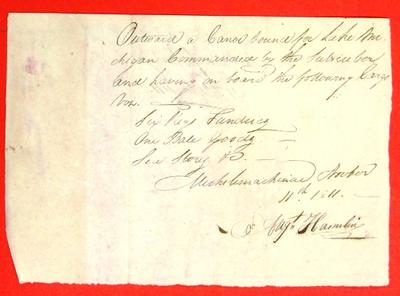 Outward a Canoe bound for Lake Mi-
chigan Commanded by the Subscriber
and having on board the following Cargo
Viz.
Six Kegs Sundries
One Bale Goods
Sea Stores &c.
Michilimackinac October
11th 1811.
Augte Hamelin